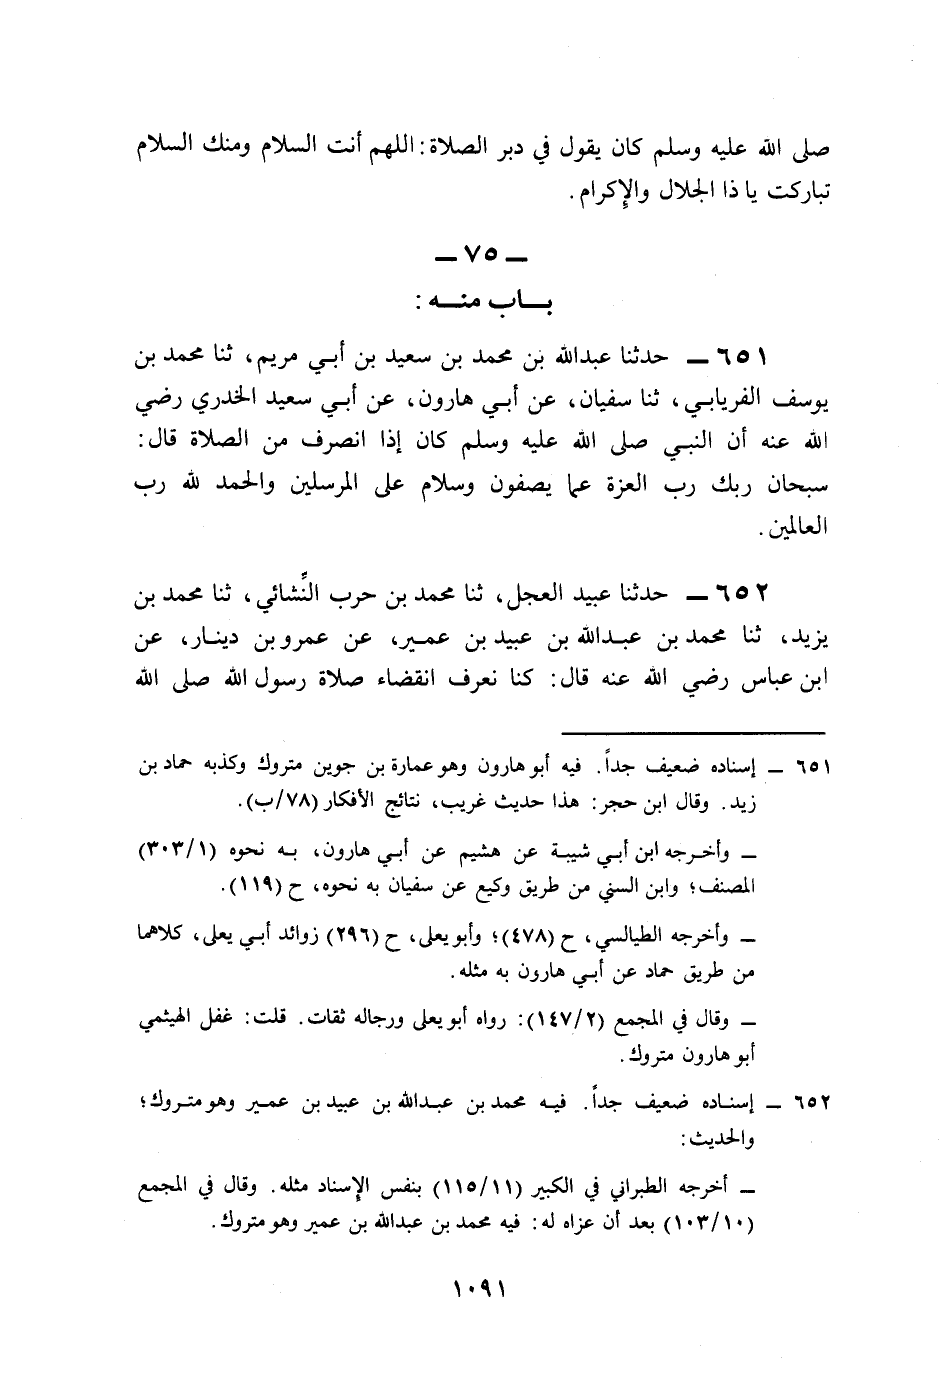 صلى الله عليه وسلم كان يقول في دبر الصلاة: اللهم أنت السلام ومنك السلام
تباركت يا ذا الجلال والإكرام.
ـ ٧٥ ـ
بـــاب منـــه :
٦٥١ ـ حدثنا عبدالله بن محمد بن سعيد بن أبـي مريم، ثنا محمد بن
يوسف الفريابـي، ثنا سفيان، عن أبـي هارون، عن أبـي سعيد الخدري رضي
الله عنه أن النبـي صلى الله عليه وسلم كان إذا انصرف من الصلاة قال:
سبحان ربك رب العزة عما يصفون وسلام على المرسلين والحمد لله رب
العالمين.
٦٥٢ ـ حدثنا عبيد العجل، ثنا محمد بن حرب النِّشائي، ثنا محمد بن
يزيد، ثنا محمد بن عبـدالله بن عبيد بن عمـير، عن عمرو بن دينـار، عن
ابن عباس رضي الله عنه قال: كنا نعرف انقضاء صلاة رسول الله صلى الله
٦٥١ ـ إسناده ضعيف جداً. فيه أبو هارون وهو عمارة بن جوين متروك وكذبه حماد بن
زيد. وقال ابن حجر: هذا حديث غريب، نتائج الأفكار (٧٨/ب).
ـ وأخـرجه ابن أبـي شيبـة عن هشيم عن أبـي هارون، بـه نحوه (٣٠٣/١)
المصنف؛ وابن السني من طريق وكيع عن سفيان به نحوه، ح (١١٩).
ـ وأخرجه الطيالسي، ح (٤٧٨)؛ وأبو يعلى، ح (٢٩٦) زوائد أبـي يعلى، كلاهما
من طريق حماد عن أبـي هارون به مثله.
ـ وقال في المجمع (١٤٧/٢): رواه أبو يعلى ورجاله ثقات. قلت: غفل الهيثمي
أبو هارون متروك.
٦٥٢ ـ إسنـاده ضعيف جداً. فيـه محمد بن عبـدالله بن عبيد بن عمـير وهو متـروك؛
والحديث:
ـ أخرجه الطبراني في الكبير (١١٥/١١) بنفس الإسناد مثله. وقال في المجمع
(١٠٣/١٠) بعد أن عزاه له: فيه محمد بن عبدالله بن عمير وهو متروك.
١٠٩١